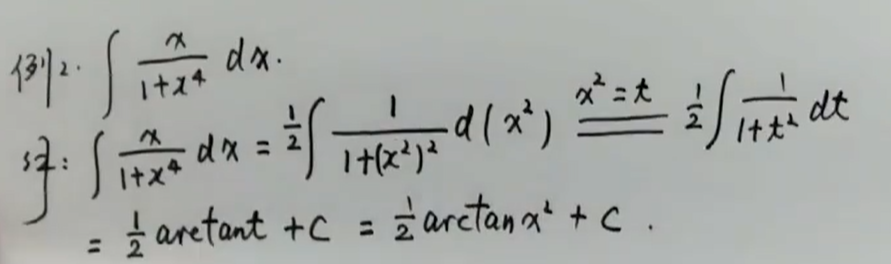 例2. ∫ x/(1+x⁴) dx.
解: ∫ x/(1+x⁴) dx = 1/2 ∫ 1/(1+(x²)²) d(x²) x²=t 1/2 ∫ 1/(1+t²) dt
= 1/2 arctant + C = 1/2 arctanx² + C .